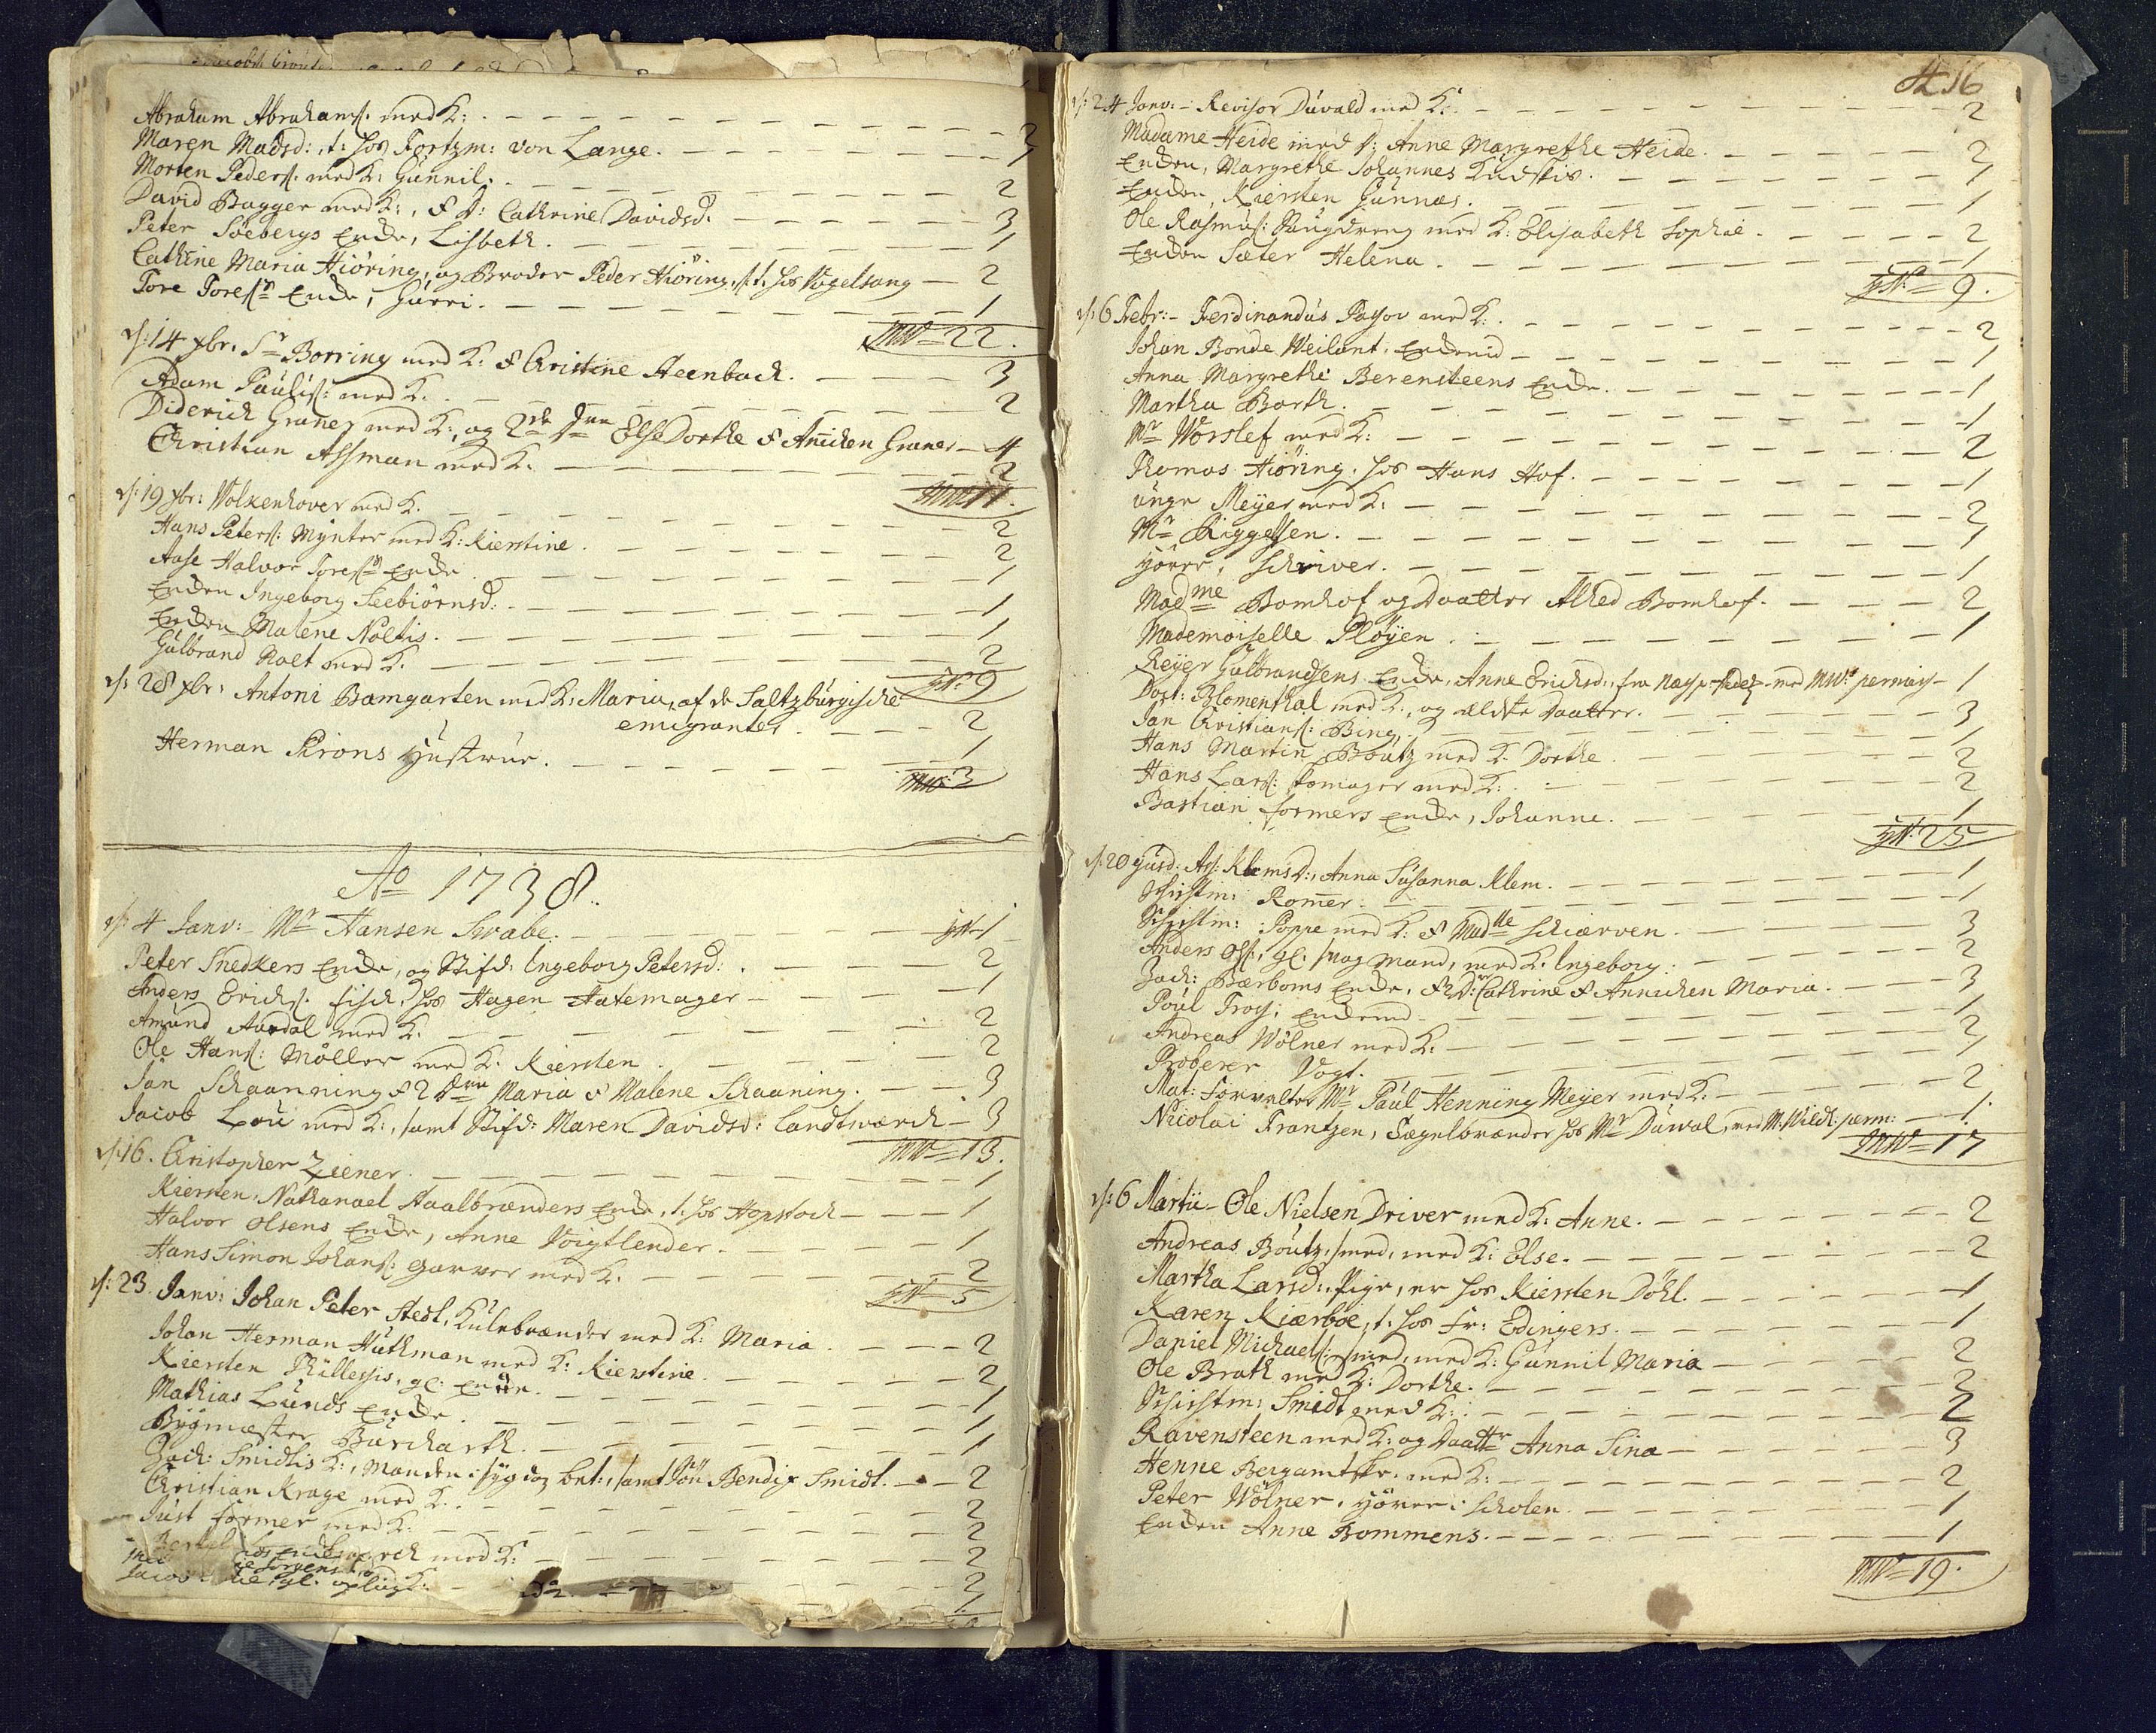 Abraham Abrahams. med K: 2
Maren Madsd:, t: hos Fortzm: von Lange. 1
Morten Peders. med K: Gunnil. 2
David Bagger med K:, & D: Cathrine Davidsd. 3
Peter Söebergs Enke, Lisbeth. 1
Cathrine Maria Hiöring, og Broder Peder Hiöring, t. hos Vogelsang 2
Tore Tores Enke, Gurri. 1
MW = 22.
d: 14 xbr. Sr Borring med K: & Christine Steenbach. 3
Adam Paulis: med K. 2
Diderich Graner med K:, og 2de Else Dorthe & Anichen Graner 4
Christian Assman med K. 2
MW 11.
d: 19 xbr: Wolkenhover med K. 2
Hans Peters: Mynter med K: Kierstine. 2
Aase Halvor Tores Enke 1
Enken Ingeborg Seebiörnsd: 1
Enken Malene Noltis. 1
Gulbrand Rolt med K. 2
9
d: 28 xbr: Antoni Bamgarten med K: Maria, af de Saltzburgische
emigranter. 2
Herman Pirons Hustrue. 1
MW: 3
Ao 1738.
d: 4 Janv: Mr Hansen Svabe. 1
Peter Snedkers Enke, og Stifd: Ingeborg Petersd: 2
Anders Erichs. fisch, hos Hagen Hatemager 1
Amund Aardal med K. 2
Ole Hans: Möller med K. Kiersten. 2
Jan Schaanning & 2 Maria & Malene Schaaning. 3
Jacob Lou med K:, samt Stifd: Maren Davidsd: Landtsværch 3
MW = 13.
d: 16. Christopher Ziener. 1
Kiersten Nathanael Staalbrænders Enke, t. hos Hopstoch 1
Halvor Olsens Enke, Anne Voigtlender. 1
Hans Simon Johans: Garver med K. 2
5
d: 23. Janv: Johan Peter Stedl, Kulebrænder med K: Maria. 2
Johan Herman Huthman med K: Kierstine. 2
Kiersten Phillessis, gl: Enke. 1
Mathias Lunds Enke. 1
Bygmæster Burcharth. 1
Zach: Smidtis K:, Manden: syg dog bet:, samt Sön Bendix Smidt. 2
Christian Krage med K. 2
Just former med K: 2
med K: 2
2
1
416
d: 24 Janv: Revisor Duvald med K: 2
Madame Heide med D: Anne Margrethe Heide. 2
Enken, Margrethe Johannes Kudskis. 1
Enken, Kiersten Gunnes. 1
Ole Rasmus: med K: Elisabeth Sophie. 2
Enken Sæter Helena. 1
9.
d: 6 Febr: Ferdinandus Paysou med K: 2
Johan Bonde Weilant. Enkemd 1
Anna Margrethe Berensteens Enke. 1
Martha Barth. 1
Mr Worslef med K: 2
Thomas Hiöring. hos Hans Hof. 1
unge Meyer med K: 2
Mr Riggelsen. 1
Höyer, Schriver. 1
Madme Bomhof og Daatter Alhed Bomhof. 2
Mademoiselle Pløyen. 1
Reyer Gulbrandsens Enke, Anne Erichsd:, fra med MW: permiss 1
Doct: Blomenthal med K:, og ældste Daatter. 3
Jan Christians: Bing. 1
Hans Martin Boutz med K. Dorthe 2
Hans Lars: Komager med K: 2
Bastian formers Enke, Johanne. 1
25
d: 20 Ass: Klemsd:, Anna Susanna Klem. 1
Schichtm: Romer. 1
Schichtm: Poppe med K: & Madlle Schiærven. 3
Anders Ols:, gl: svag mand, med K. Ingeborg: 2
Zach: Bærboms Enke, & D: Cathrine & Annichen Maria. 3
Poul Frogs: Enkemd 1
Andreas Wölner med K: 2
Proberer Vogt. 1
Mat: Forvalter Mr Paul Henning Meyer med K. 2
Nicolai Frantzen, Tægelbrænder hos Mr Duval, med M: Wildt: perm: 1.
MW = 17
d: 6 Martii Ole Nielsen Driver med K: Anne. 2
Andreas Boutz, smed, med K: Else. 2
Martha Larsd:, Pige, er hos Kiersten Döhl. 1
Karen Kiærböe, t: hos Fr: Edingers. 1
Daniel Michaels: smed, med K: Gunnil Maria 2
Ole Brath med K: Dorthe. 2
Schichtm: Smidt med K: 2
Ravensteen med K: og Daattr Anna Sina 3
Henne Bergamtskr. med K: 2
Peter Wölner, Hörer i Scholen 1
Enken Anne Bommens. 1
MW = 19.